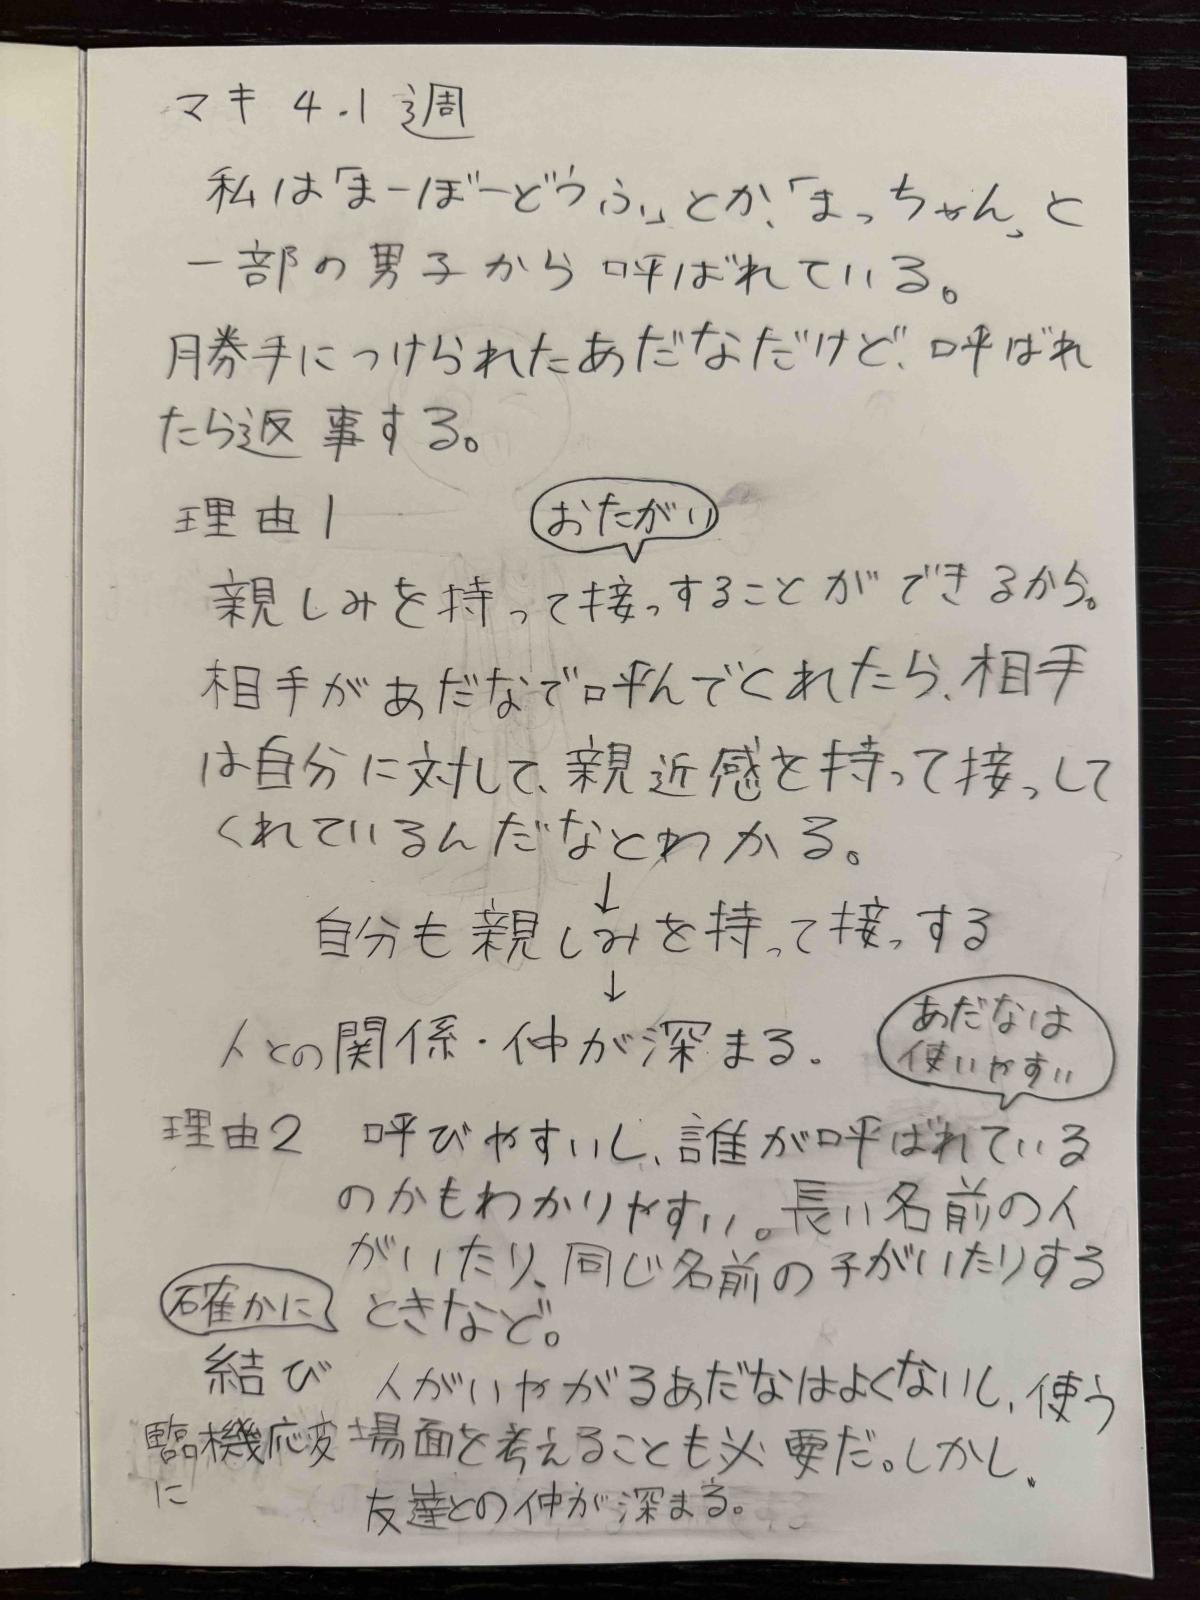 マキ 4.1週
私は「まーぼーどうふ」とか、「まっちゃん」と
一部の男子から呼ばれている。
勝手につけられたあだなだけど、呼ばれ
たら返事する。
理由1
おたがい
親しみを持って接っすることができるから。
相手があだなで呼んでくれたら、相手
は自分に対して、親近感を持って接っして
くれているんだなとわかる。
↓
自分も親しみを持って接っする
↓
人との関係・仲が深まる.
あだなは
使いやすい
理由2 呼びやすいし、誰が呼ばれている
のかもわかりやすい。長い名前の人
がいたり、同じ名前の子がいたりする
ときなど。
確かに
結び 人がいやがるあだなはよくないし、使う
臨機応変 場面を考えることも必要だ。しかし、
に
友達との仲が深まる。